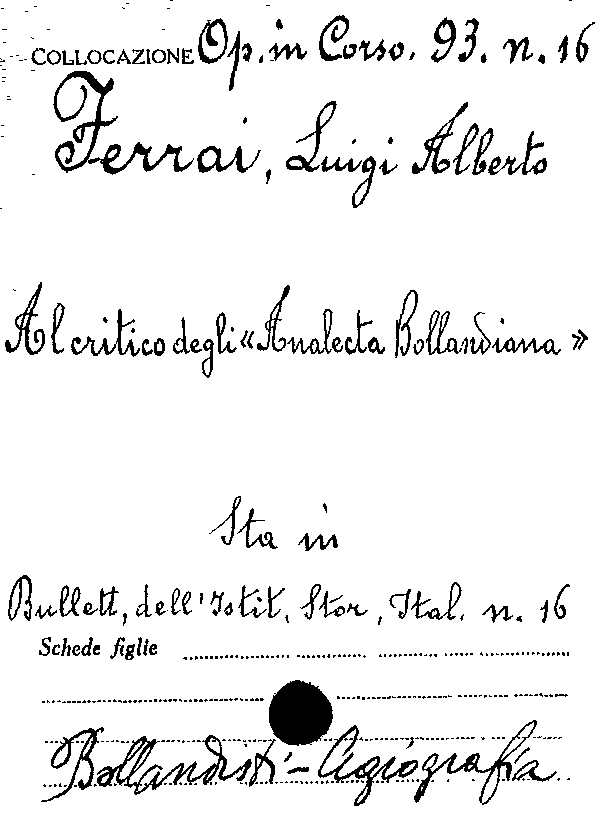 COLLOCAZIONE Op. in Corso. 93. n. 16
Ferrai, Luigi Alberto
Al critico degli « Analecta Bollandiana »
Sta in
Bullett, dell' Istit. Stor, Ital. n. 16
Schede figlie
Bollandisti - Agiografia